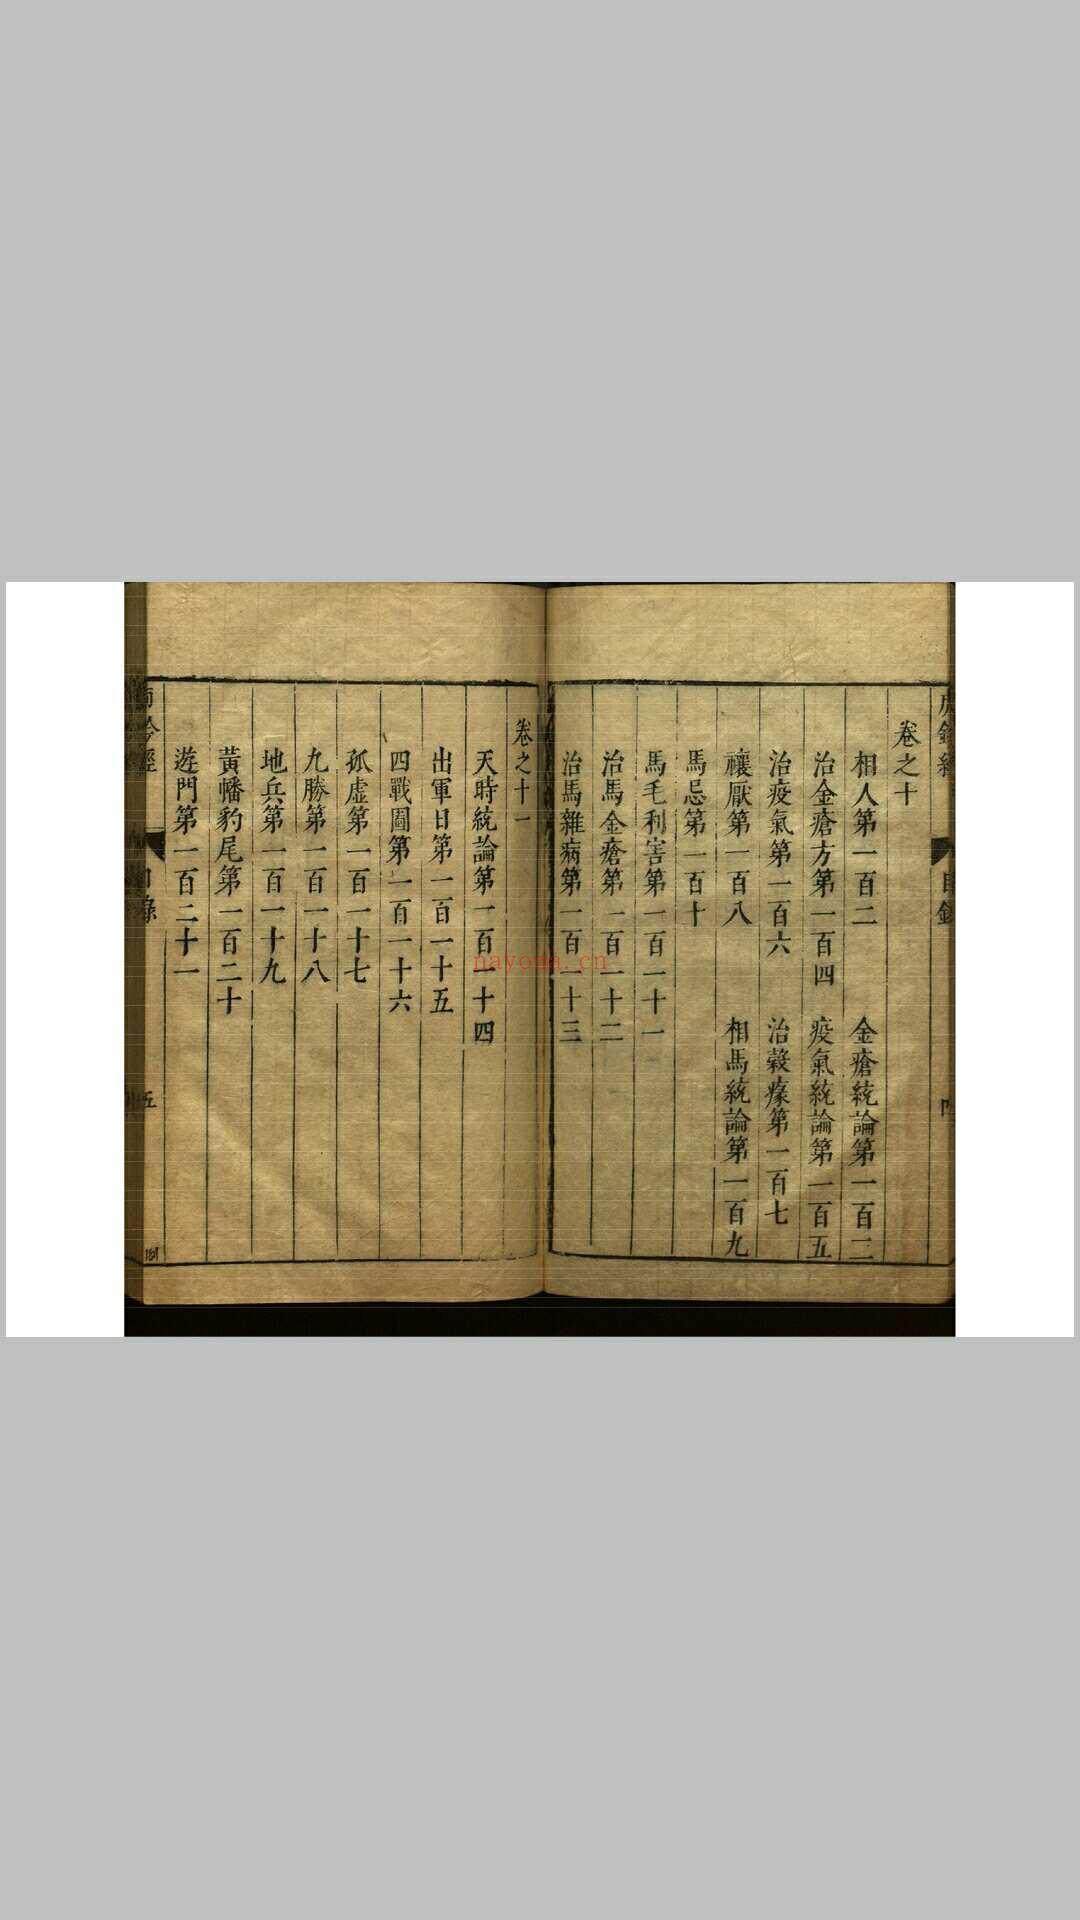 虎鈐經 目錄 四
卷之十
相人第一百二 金瘡統論第一百二
治金瘡方第一百四 疫氣統論第一百五
治疫氣第一百六 治皸瘃第一百七
禳厭第一百八 相馬統論第一百九
馬忌第一百十
馬毛利害第一百一十一
治馬金瘡第一百一十二
治馬雜病第一百一十三
卷之十一
天時統論第一百一十四
出軍日第一百一十五
四戰圖第一百一十六
孤虛第一百一十七
九勝第一百一十八
地兵第一百一十九
黃幡豹尾第一百二十
遊門第一百二十一
鈐經 目錄 五
nayona.cn